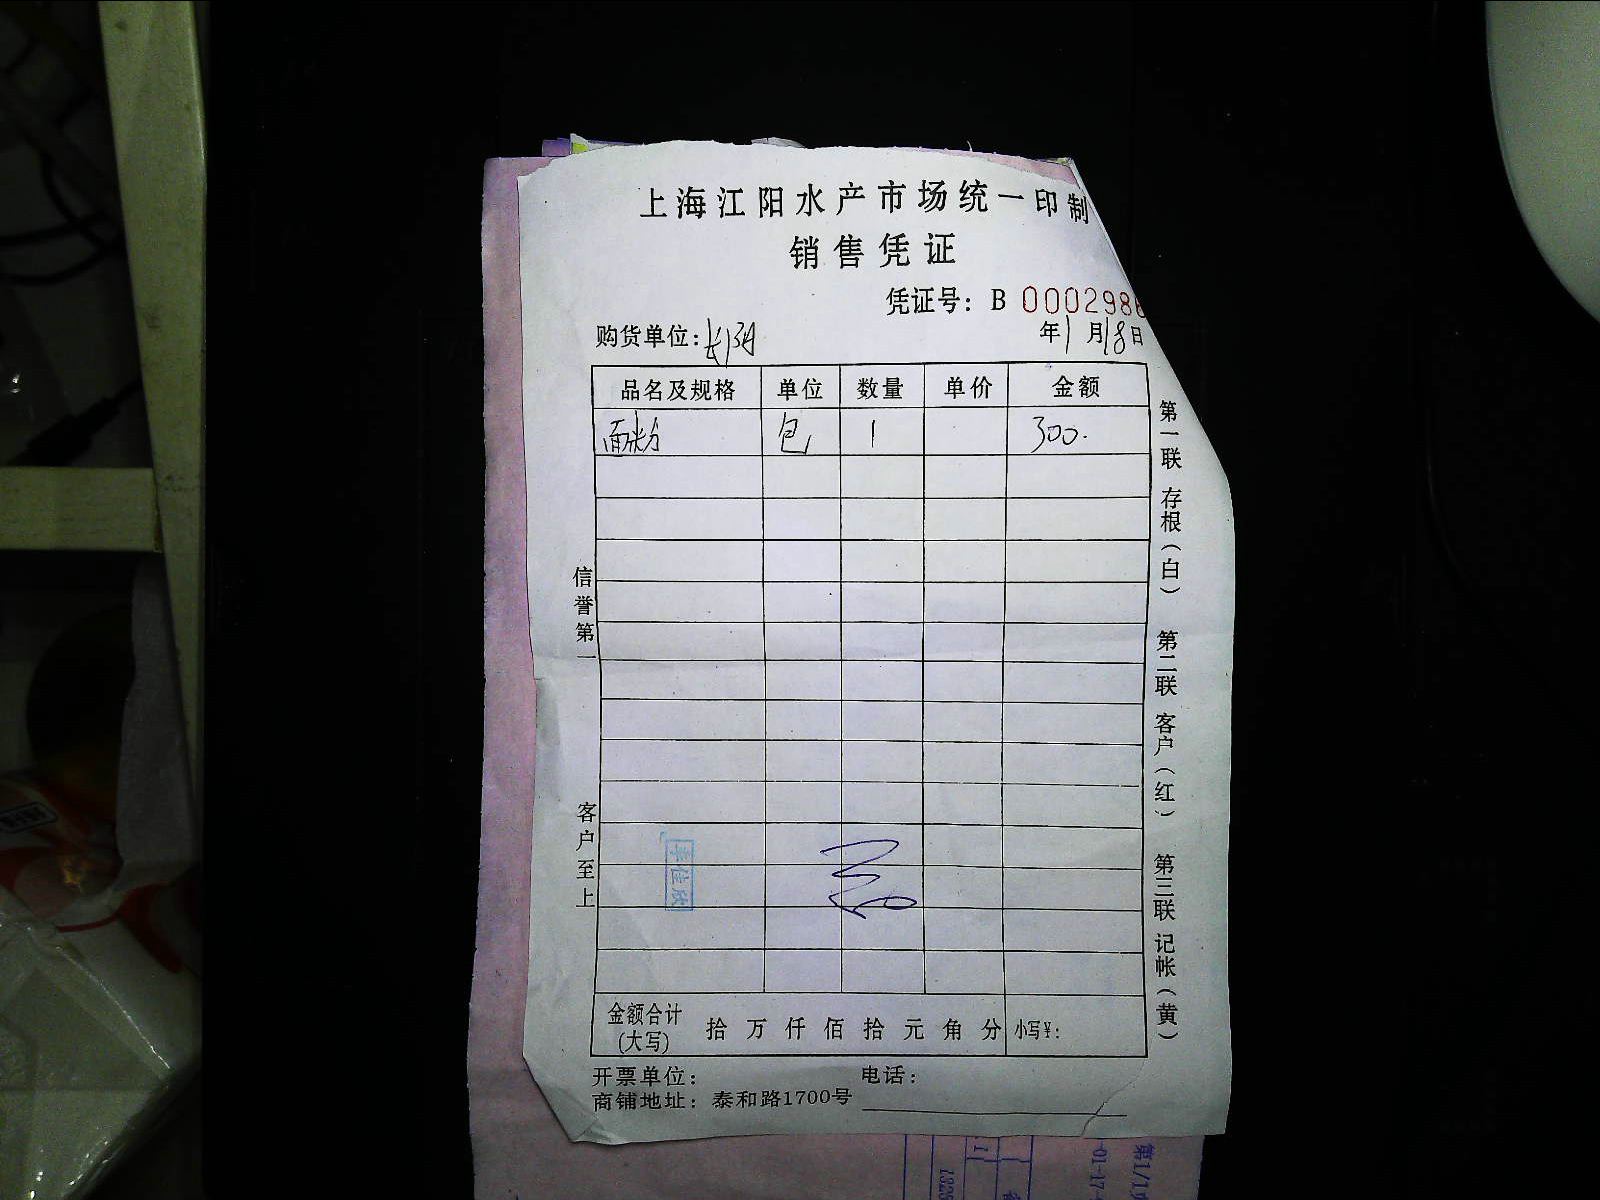 上海江阳水产市场统一印制
销售凭证
凭证号：B 0002986
购货单位：长阳 年1月18日
品名及规格 单位 数量 单价 金额
面粉 包 1 300.
信誉第一
客户至上
第一联 存根（白） 第二联 客户（红） 第三联 记帐（黄）
金额合计(大写) 拾万仟佰拾元角分 小写¥:
开票单位： 电话：
商铺地址：泰和路1700号
第1/1
-01-17-